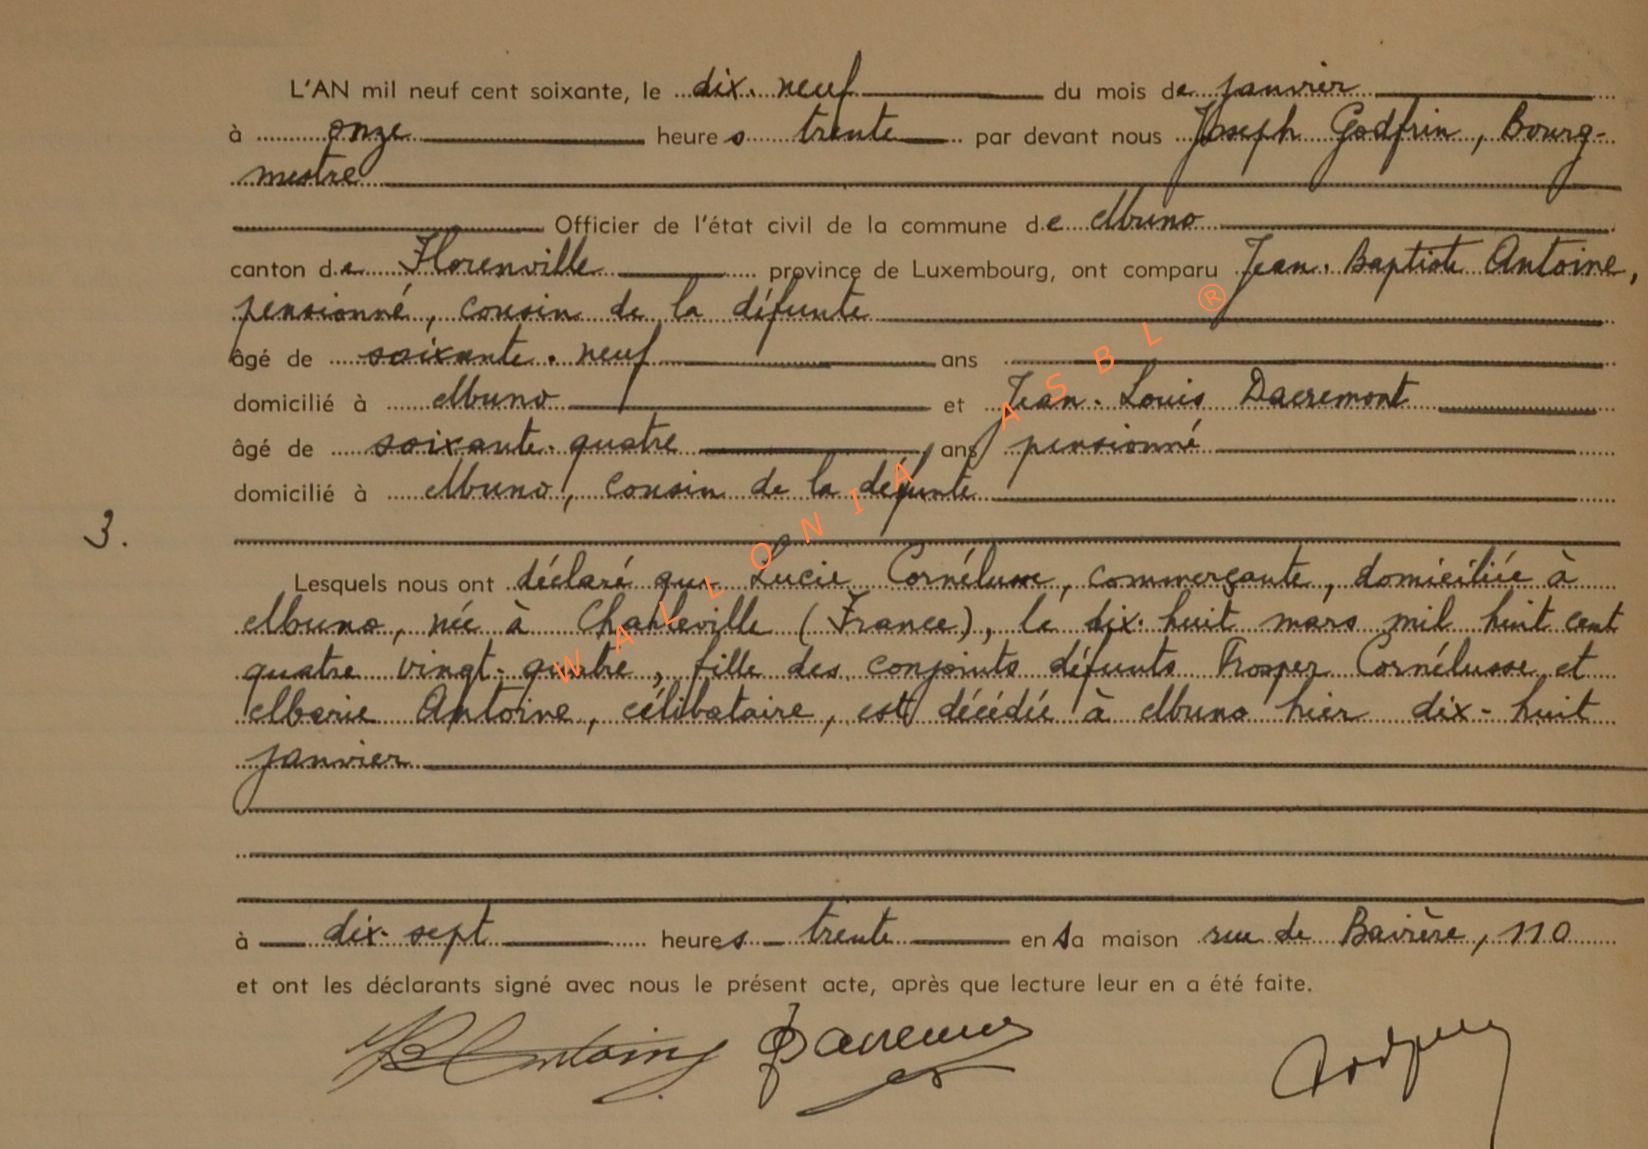 L'AN mil neuf cent soixante, le dix-neuf du mois de janvier
à onze heures trente par devant nous Joseph Godfrin, Bourg-
mestre
Officier de l'état civil de la commune de Muno
canton de Florenville province de Luxembourg, ont comparu Jean-Baptiste Antoine,
pensionné, cousin de la défunte
âgé de soixante-neuf ans
domicilié à Muno et Jean-Louis Dacremont
âgé de soixante-quatre ans pensionné
domicilié à Muno, cousin de la défunte
3.
Lesquels nous ont déclaré que Lucie Cornélusse, commerçante, domiciliée à
Muno, née à Charleville (France), le dix-huit mars mil huit cent
quatre vingt-quatre, fille des conjoints défunts Prosper Cornélusse et
Marie Antoine, célibataire, est décédée à Muno hier dix-huit
janvier
à dix-sept heures trente en sa maison rue de Bavière, 110
et ont les déclarants signé avec nous le présent acte, après que lecture leur en a été faite.
JB Antoine Dacremont Godfrin
WALLONIA ASBL ®